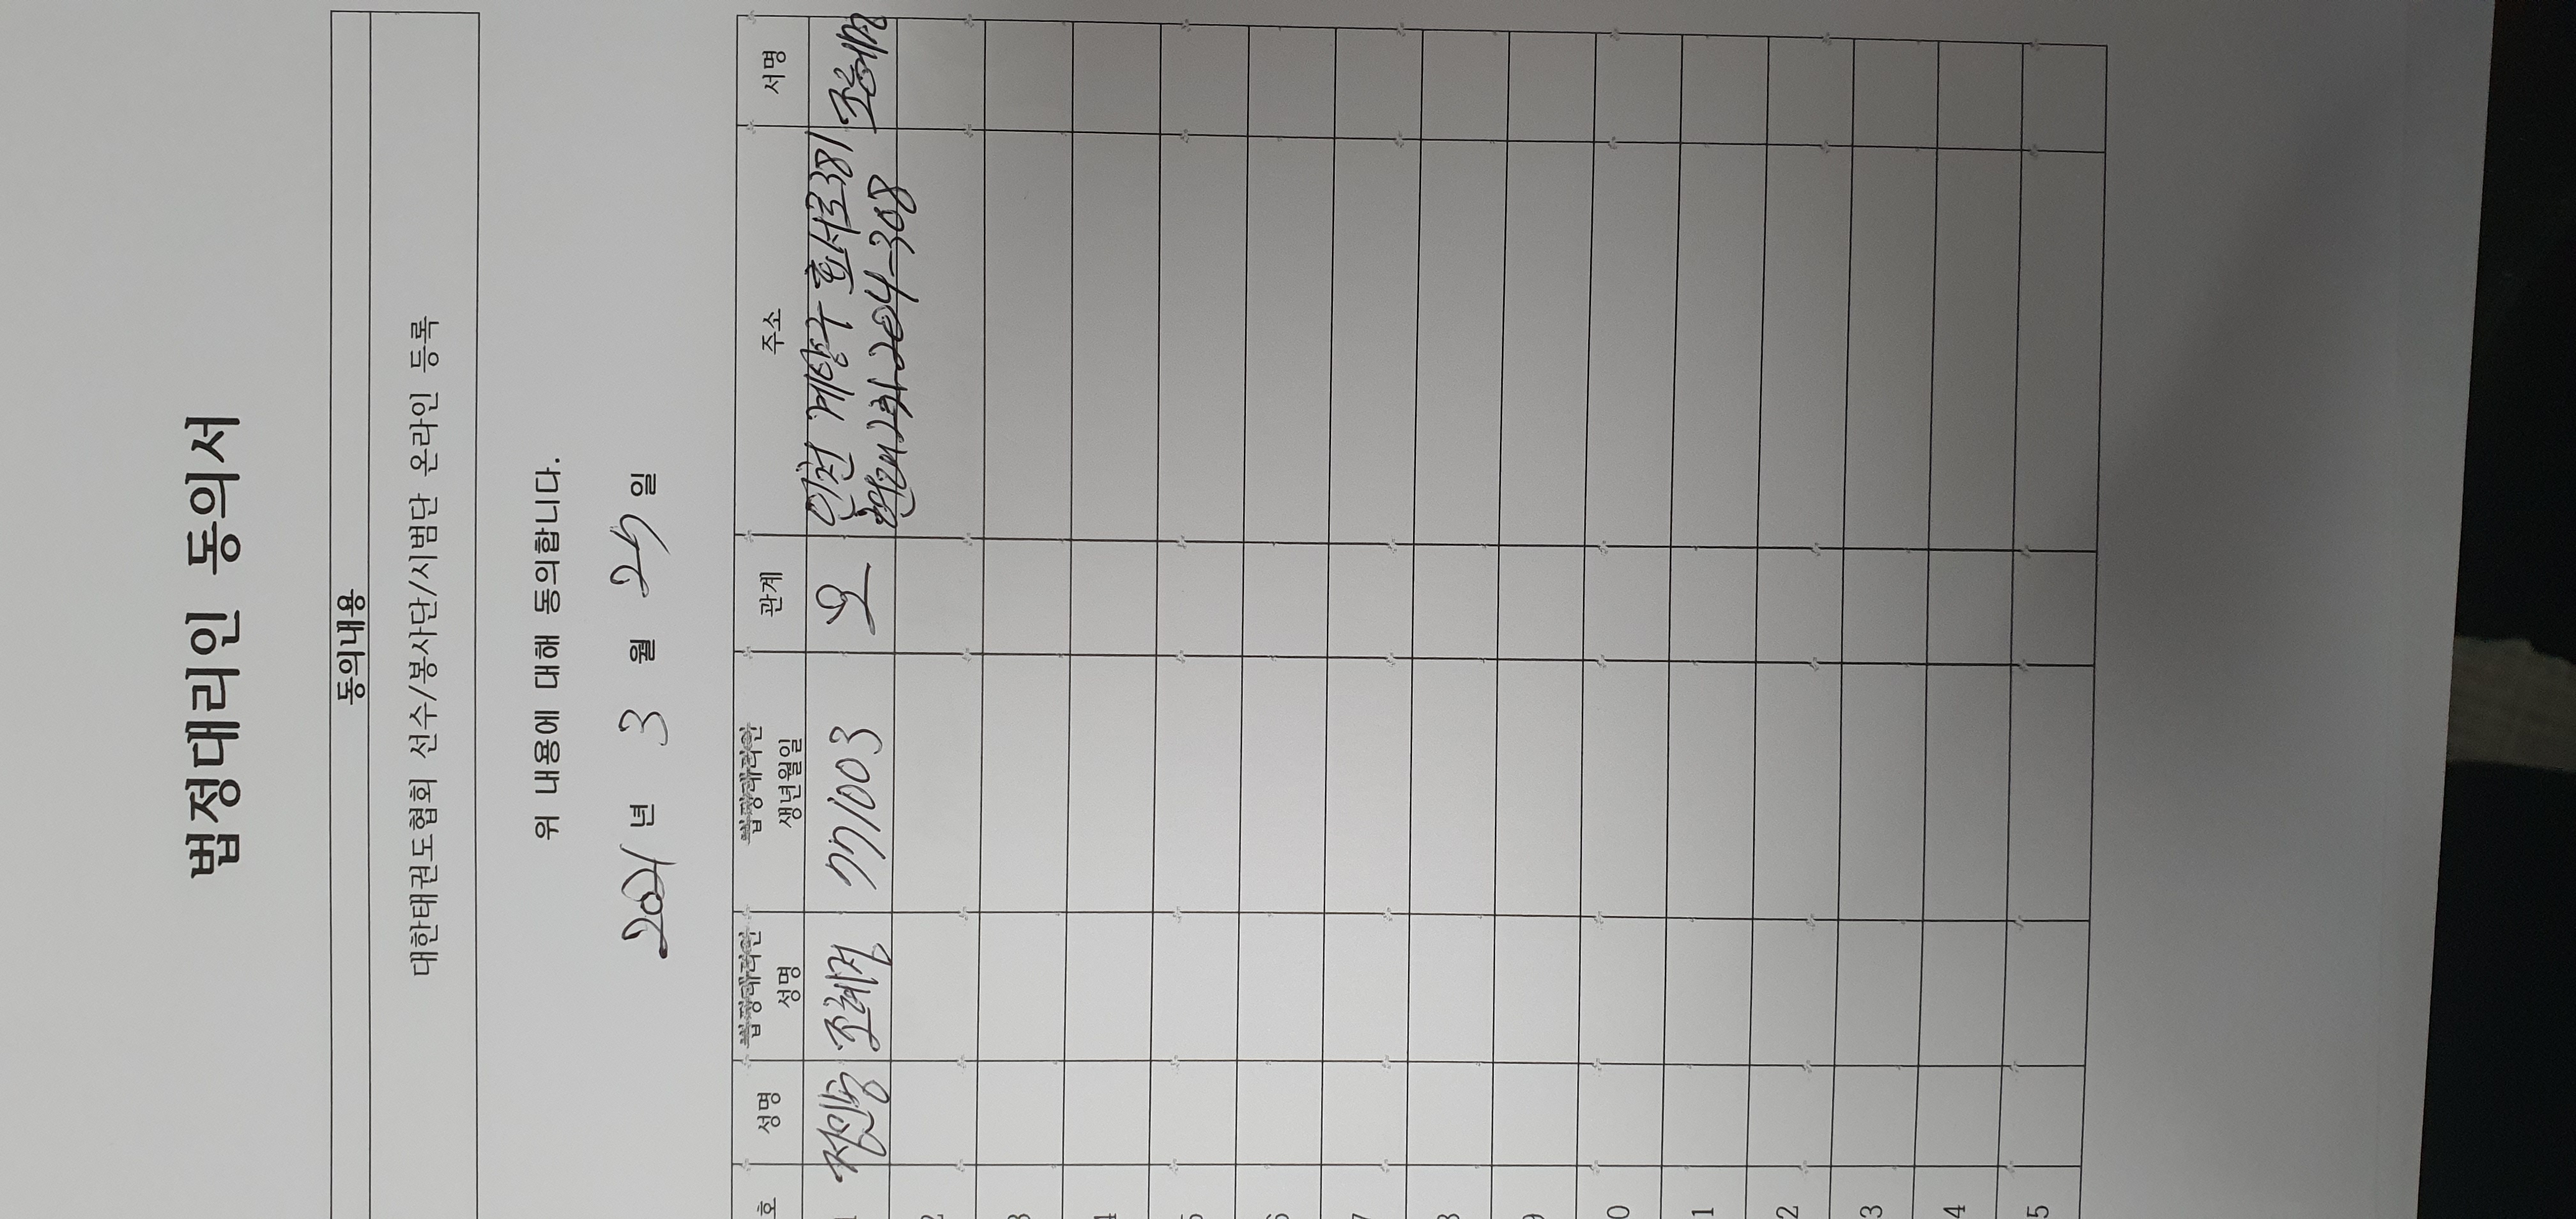 법정대리인 동의서
동의내용
대한태권도협회 선수/봉사단/시범단 온라인 등록
위 내용에 대해 동의합니다.
2021 년 3 월 25 일
호 성명 법정대리인 성명 법정대리인 생년월일 관계 주소 서명
1 771003 모 인천 계양구 효서로338
현대2차 204-308
2
3
4
5
6
7
8
9
0
1
2
3
4
5